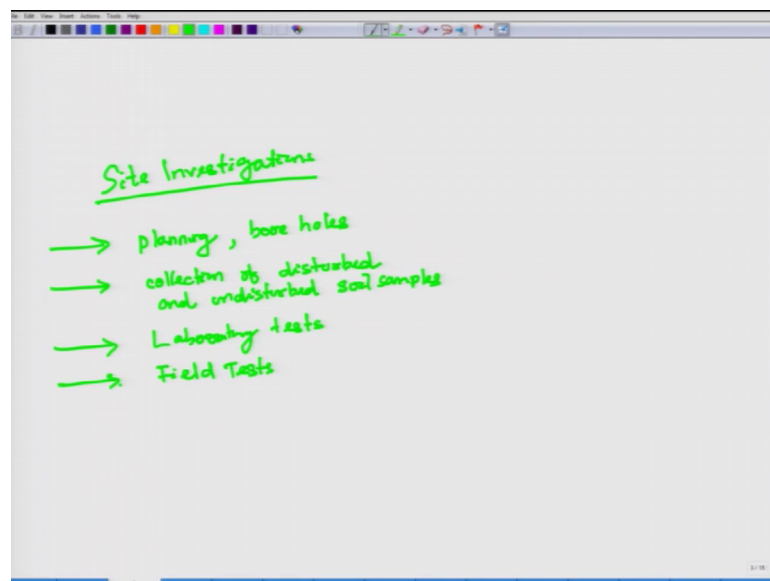 File Edit View Insert Actions Tools Help
Site Investigations
planning, bore holes
collection of disturbed
and undisturbed soil samples
Laboratory tests
Field Tests
3 / 15